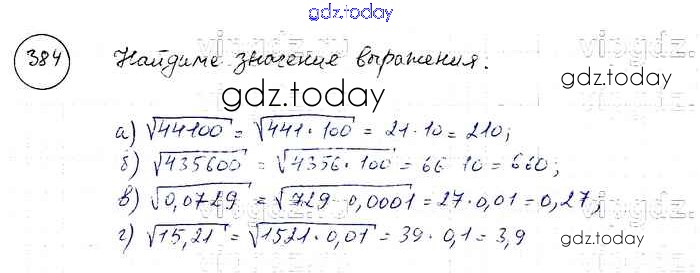 gdz.today
384 Найдите значение выражения.
gdz.today
а) √44100 = √441·100 = 21·10 = 210;
б) √435600 = √4356·100 = 66·10 = 660;
в) √0,0729 = √729·0,0001 = 27·0,01 = 0,27;
г) √15,21 = √1521·0,01 = 39·0,1 = 3,9
gdz.today